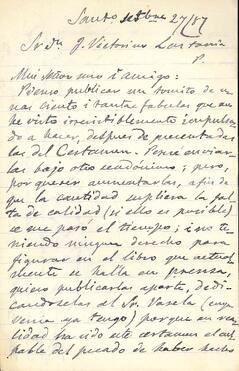 Santo setbre 27/87
Sr dn J. Victorino Lastarria
P.
Mui Señor mio i amigo:
Pienso publicar un tomito de u-
nas ciento i tantas fabulas que me
he visto irresistiblemente impulsa-
do a hacer, despues de presentadas
las del Certamen. Pensé enviar-
las bajo otro seudónimo; pero,
por querer aumentarlas, a fin de
que la cantidad supliera la fal-
ta de calidad (si ello es posible)
se me pasó el tiempo; i no te-
niendo ningun derecho para
figurar en el libro que actual-
mente se halla en prensa,
quiero publicarlas aparte, dedi-
candoselas al Sr. Varela (cuya
venia ya tengo) porque en rea-
lidad ha sido este certamen el cul-
pable del pecado de haber hecho